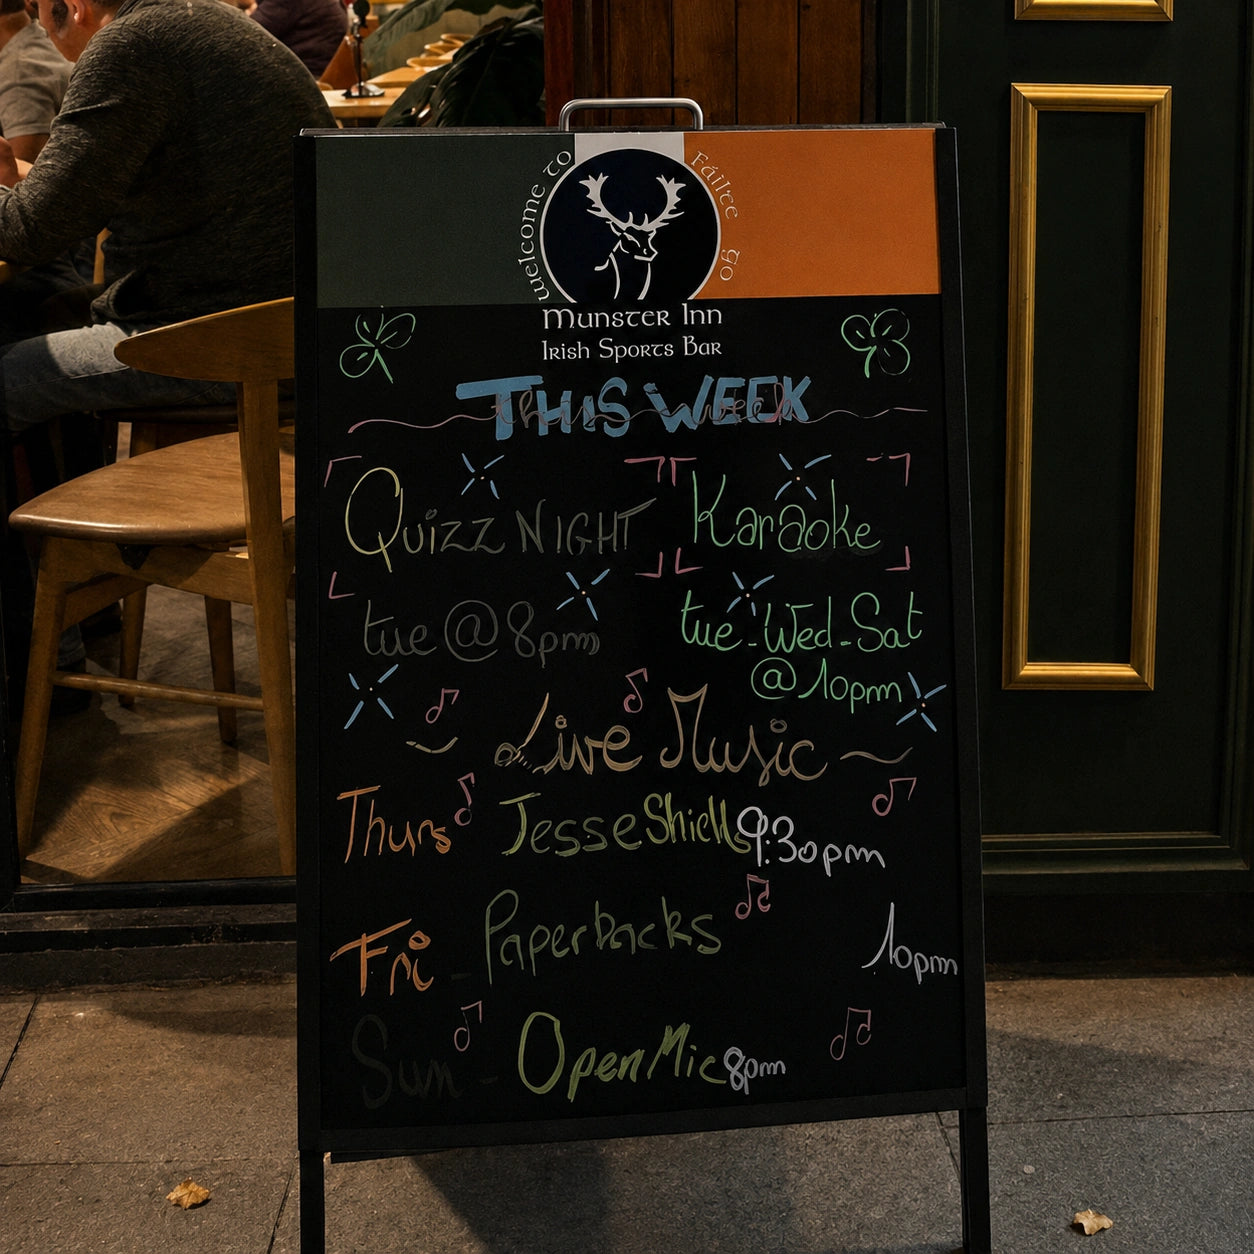 Welcome to
Fáilte go
Munster Inn
Irish Sports Bar
THIS WEEK
this week
Quizz NIGHT
tue @ 8pm
Karaoke
tue - Wed - Sat
@ 10pm
Live Music
Thurs Jesse Shiells 9:30pm
Fri - Paperbacks 10pm
Sun - Open Mic 8pm